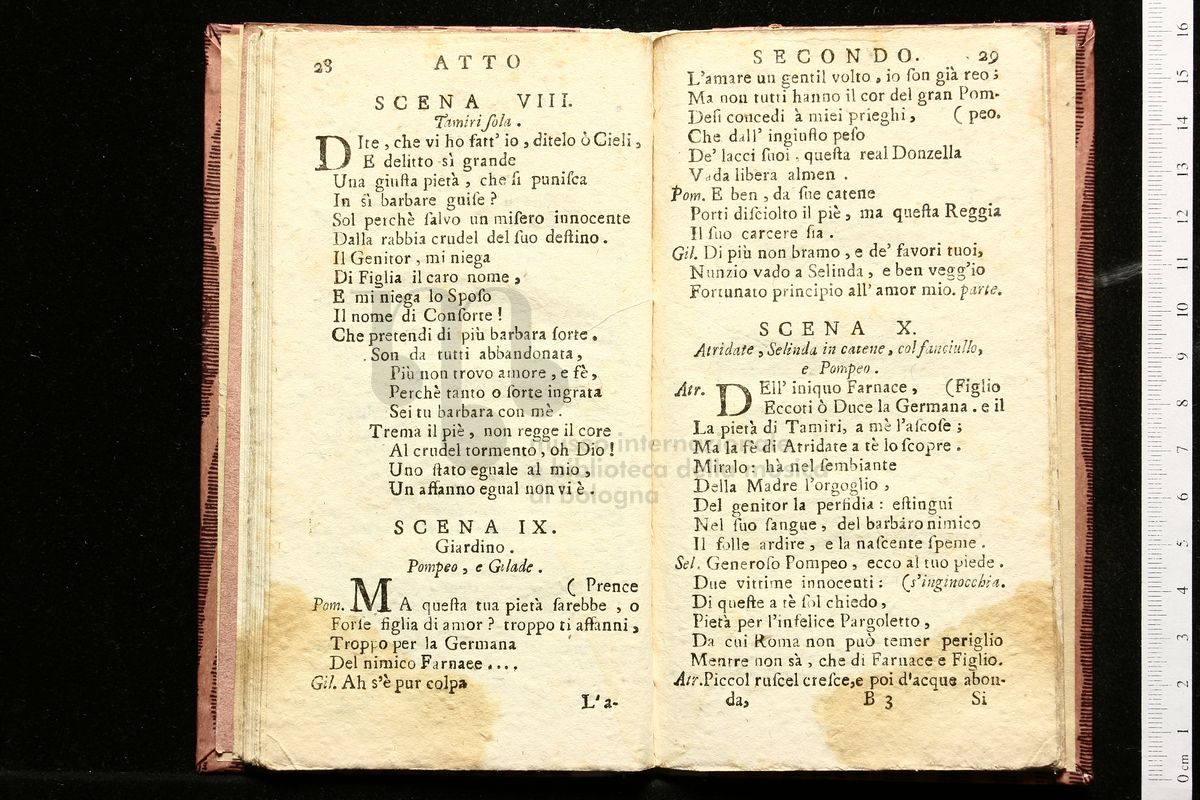 28 ATTO
SCENA VIII.
Tamiri ſola.
DIte, che vi ho fatt' io, ditelo ò Cieli,
E delitto sì grande
Una giuſta pietà, che ſi puniſca
In sì barbare guiſe?
Sol perchè ſalvo un miſero innocente
Dalla rabbia crudel del ſuo deſtino.
Il Genitor, mi niega
Di Figlia il caro nome,
E mi niega lo Spoſo
Il nome di Conſorte!
Che pretendi di più barbara ſorte.
Son da tutti abbandonata,
Più non trovo amore, e fè,
Perchè tanto o ſorte ingrata
Sei tu barbara con mè.
Trema il piè, non regge il core
Al crudel tormento, oh Dio!
Uno ſtato eguale al mio,
Un affanno egual non vi è.
SCENA IX.
Giardino.
Pompeo, e Gilade.
( Prence
Pom. MA queſta tua pietà ſarebbe, o
Forſe figlia di amor? troppo ti affanni,
Troppo per la Germana
Del nimico Farnaee....
Gil. Ah s'è pur colpa
L'a-
SECONDO. 29
L'amare un gentil volto, io ſon già reo;
Ma non tutti hanno il cor del gran Pom-
Deſi concedi à miei prieghi, ( peo.
Che dall' ingiuſto peſo
De' lacci ſuoi, queſta real Donzella
Vada libera almen.
Pom. E ben, da ſue catene
Porti diſciolto il piè, ma queſta Reggia
Il ſuo carcere ſia.
Gil. Di più non bramo, e de' favori tuoi,
Nunzio vado a Selinda, e ben vegg'io
Fortunato principio all' amor mio. parte.
SCENA X.
Atridate, Selinda in catene, col fanciullo,
e Pompeo.
Atr. DEll' iniquo Farnace, (Figlio
Eccoti ò Duce la Germana. e il
La pietà di Tamiri, a mè l'aſcoſe;
Ma la fè di Atridate a tè lo ſcopre.
Miralo: hà nel ſembiante
Della Madre l'orgoglio,
Del genitor la perfidia: eſtingui
Nel ſuo ſangue, del barbàro nimico
Il folle ardire, e la naſcente ſpeme.
Sel. Generoſo Pompeo, ecco al tuo piede.
Due vittime innocenti: (s'inginocchia.
Di queſte a tè ſol chiedo,
Pietà per l'infelice Pargoletto,
Da cui Roma non può temer periglio
Mentre non sà, che di Farnace e Figlio.
Atr. Piccol ruſcel creſce, e poi d'acque abon-
da, B 3 Si
museo internazionale
e biblioteca della musica
di bologna
0 cm 1 2 3 4 5 6 7 8 9 10 11 12 13 14 15 16